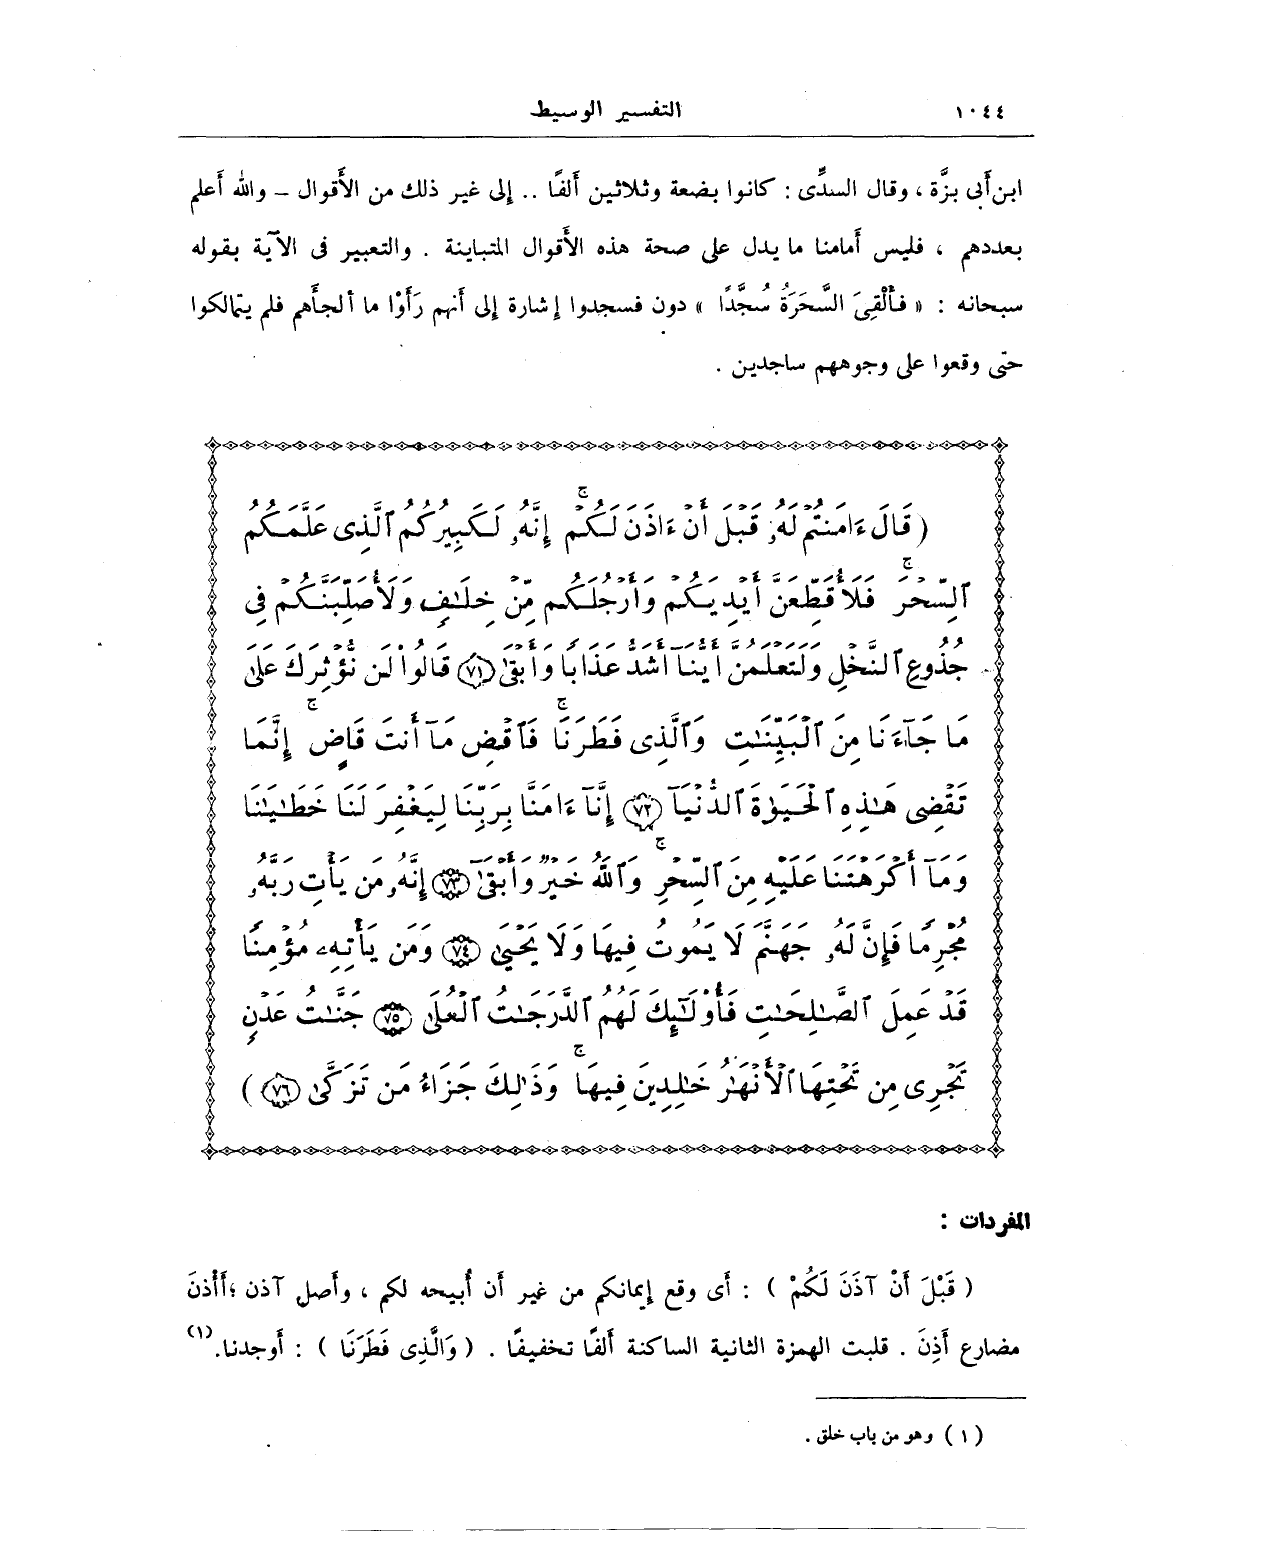 ١٠٤٤ التفسير الوسيط
ابن أَبى بزَّة ، وقال السدِّى : كانوا بضعة وثلاثين أَلفًا .. إلى غير ذلك من الأَقوال – والله أَعلم
بعددهم ، فليس أَمامنا ما يدل على صحة هذه الأَقوال المتباينة . والتعبير فى الآية بقوله
سبحانه : « فَأُلْقِىَ السَّحَرَةُ سُجَّدًا » دون فسجدوا إشارة إلى أنهم رَأَوْا ما ألجأَهم فلم يتمالكوا
حتى وقعوا على وجوههم ساجدين .
( قَالَ ءَامَنتُمْ لَهُۥ قَبْلَ أَنْ ءَاذَنَ لَكُمْ ۚ إِنَّهُۥ لَكَبِيرُكُمُ ٱلَّذِى عَلَّمَكُمُ
ٱلسِّحْرَ ۖ فَلَأُقَطِّعَنَّ أَيْدِيَكُمْ وَأَرْجُلَكُم مِّنْ خِلَٰفٍ وَلَأُصَلِّبَنَّكُمْ فِى
جُذُوعِ ٱلنَّخْلِ وَلَتَعْلَمُنَّ أَيُّنَآ أَشَدُّ عَذَابًا وَأَبْقَىٰ ﴿٧١﴾ قَالُوا۟ لَن نُّؤْثِرَكَ عَلَىٰ
مَا جَآءَنَا مِنَ ٱلْبَيِّنَٰتِ وَٱلَّذِى فَطَرَنَا ۖ فَٱقْضِ مَآ أَنتَ قَاضٍ ۖ إِنَّمَا
تَقْضِى هَٰذِهِ ٱلْحَيَوٰةَ ٱلدُّنْيَآ ﴿٧٢﴾ إِنَّآ ءَامَنَّا بِرَبِّنَا لِيَغْفِرَ لَنَا خَطَٰيَٰنَا
وَمَآ أَكْرَهْتَنَا عَلَيْهِ مِنَ ٱلسِّحْرِ ۗ وَٱللَّهُ خَيْرٌ وَأَبْقَىٰٓ ﴿٧٣﴾ إِنَّهُۥ مَن يَأْتِ رَبَّهُۥ
مُجْرِمًا فَإِنَّ لَهُۥ جَهَنَّمَ لَا يَمُوتُ فِيهَا وَلَا يَحْيَىٰ ﴿٧٤﴾ وَمَن يَأْتِهِۦ مُؤْمِنًا
قَدْ عَمِلَ ٱلصَّٰلِحَٰتِ فَأُو۟لَٰٓئِكَ لَهُمُ ٱلدَّرَجَٰتُ ٱلْعُلَىٰ ﴿٧٥﴾ جَنَّٰتُ عَدْنٍ
تَجْرِى مِن تَحْتِهَا ٱلْأَنْهَٰرُ خَٰلِدِينَ فِيهَا ۚ وَذَٰلِكَ جَزَآءُ مَن تَزَكَّىٰ ﴿٧٦﴾ )
المفردات :
( قَبْلَ أَنْ آذَنَ لَكُمْ ) : أَى وقع إيمانكم من غير أن أُبيحه لكم ، وأَصل آذن ؛ أَأْذنَ
مضارع أَذِنَ . قلبت الهمزة الثانية الساكنة ألفًا تخفيفًا . ( وَالَّذِى فَطَرَنَا ) : أَوجدنا.(١)
(١) وهو من باب خلق .